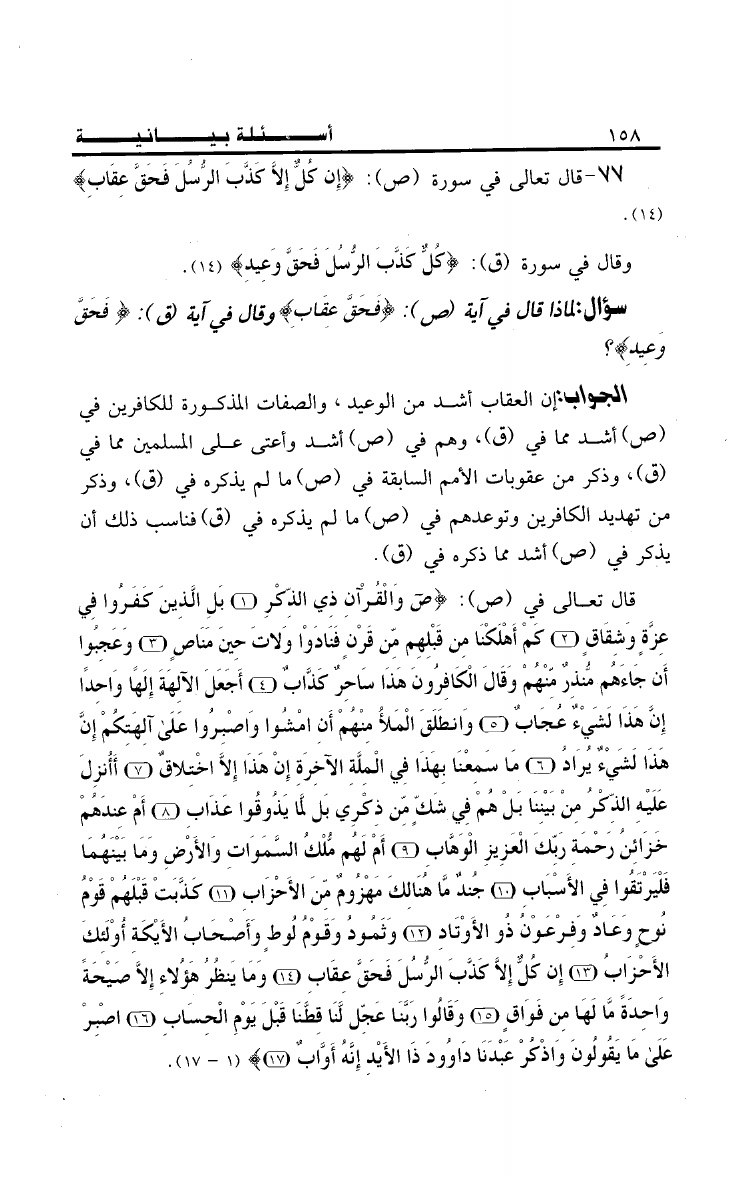 ١٥٨ أســـئلة بيـــانيـــة
٧٧-قال تعالى في سورة (ص): ﴿إِن كُلٌّ إِلاَّ كَذَّبَ الرُّسُلَ فَحَقَّ عِقَابِ﴾
(١٤).
وقال في سورة (ق): ﴿كُلٌّ كَذَّبَ الرُّسُلَ فَحَقَّ وَعِيدِ﴾ (١٤).
سؤال:لماذا قال في آية (ص): ﴿فَحَقَّ عِقَابِ﴾ وقال في آية (ق): ﴿ فَحَقَّ
وَعِيدِ﴾؟
الجواب:إن العقاب أشـد من الوعيد ، والصفات المذكـورة للكافرين في
(ص) أشـد مما في (ق)، وهم في (ص) أشـد وأعتى علـى المسلمين مما في
(ق)، وذكر من عقوبات الأمم السابقة في (ص) ما لم يذكره في (ق)، وذكر
من تهديد الكافرين وتوعدهم في (ص) ما لم يذكره في (ق) فناسب ذلك أن
يذكر في (ص) أشد مما ذكره في (ق).
قال تعـالى في (ص): ﴿صَ وَالْقُرْآنِ ذِي الذِّكْرِ (١) بَلِ الَّذِينَ كَفَرُوا فِي
عِزَّةٍ وَشِقَاقٍ (٢) كَمْ أَهْلَكْنَا مِن قَبْلِهِم مِّن قَرْنٍ فَنَادَوْا وَلاتَ حِينَ مَنَاصٍ (٣) وَعَجِبُوا
أَن جَاءَهُم مُّنذِرٌ مِّنْهُمْ وَقَالَ الْكَافِرُونَ هَذَا سَاحِرٌ كَذَّابٌ (٤) أَجَعَلَ الآلِهَةَ إِلَهًا وَاحِدًا
إِنَّ هَذَا لَشَيْءٌ عُجَابٌ (٥) وَانطَلَقَ الْمَلأُ مِنْهُمْ أَنِ امْشُوا وَاصْبِرُوا عَلَىٰ آلِهَتِكُمْ إِنَّ
هَذَا لَشَيْءٌ يُرَادُ (٦) مَا سَمِعْنَا بِهَذَا فِي الْمِلَّةِ الآخِرَةِ إِنْ هَذَا إِلاَّ اخْتِلاقٌ (٧) أَأُنزِلَ
عَلَيْهِ الذِّكْرُ مِنْ بَيْنِنَا بَلْ هُمْ فِي شَكٍّ مِّن ذِكْرِي بَل لَّمَّا يَذُوقُوا عَذَابِ (٨) أَمْ عِندَهُمْ
خَزَائِنُ رَحْمَةِ رَبِّكَ الْعَزِيزِ الْوَهَّابِ (٩) أَمْ لَهُم مُّلْكُ السَّمَوَاتِ وَالأَرْضِ وَمَا بَيْنَهُمَا
فَلْيَرْتَقُوا فِي الأَسْبَابِ (١٠) جُندٌ مَّا هُنَالِكَ مَهْزُومٌ مِّنَ الأَحْزَابِ (١١) كَذَّبَتْ قَبْلَهُمْ قَوْمُ
نُوحٍ وَعَادٌ وَفِرْعَوْنُ ذُو الأَوْتَادِ (١٢) وَثَمُودُ وَقَوْمُ لُوطٍ وَأَصْحَابُ الأَيْكَةِ أُوْلَئِكَ
الأَحْزَابُ (١٣) إِن كُلٌّ إِلاَّ كَذَّبَ الرُّسُلَ فَحَقَّ عِقَابِ (١٤) وَمَا يَنظُرُ هَؤُلاءِ إِلاَّ صَيْحَةً
وَاحِدَةً مَّا لَهَا مِن فَوَاقٍ (١٥) وَقَالُوا رَبَّنَا عَجِّل لَّنَا قِطَّنَا قَبْلَ يَوْمِ الْحِسَابِ (١٦) اصْبِرْ
عَلَىٰ مَا يَقُولُونَ وَاذْكُرْ عَبْدَنَا دَاوُودَ ذَا الأَيْدِ إِنَّهُ أَوَّابٌ (١٧)﴾ (١ - ١٧).